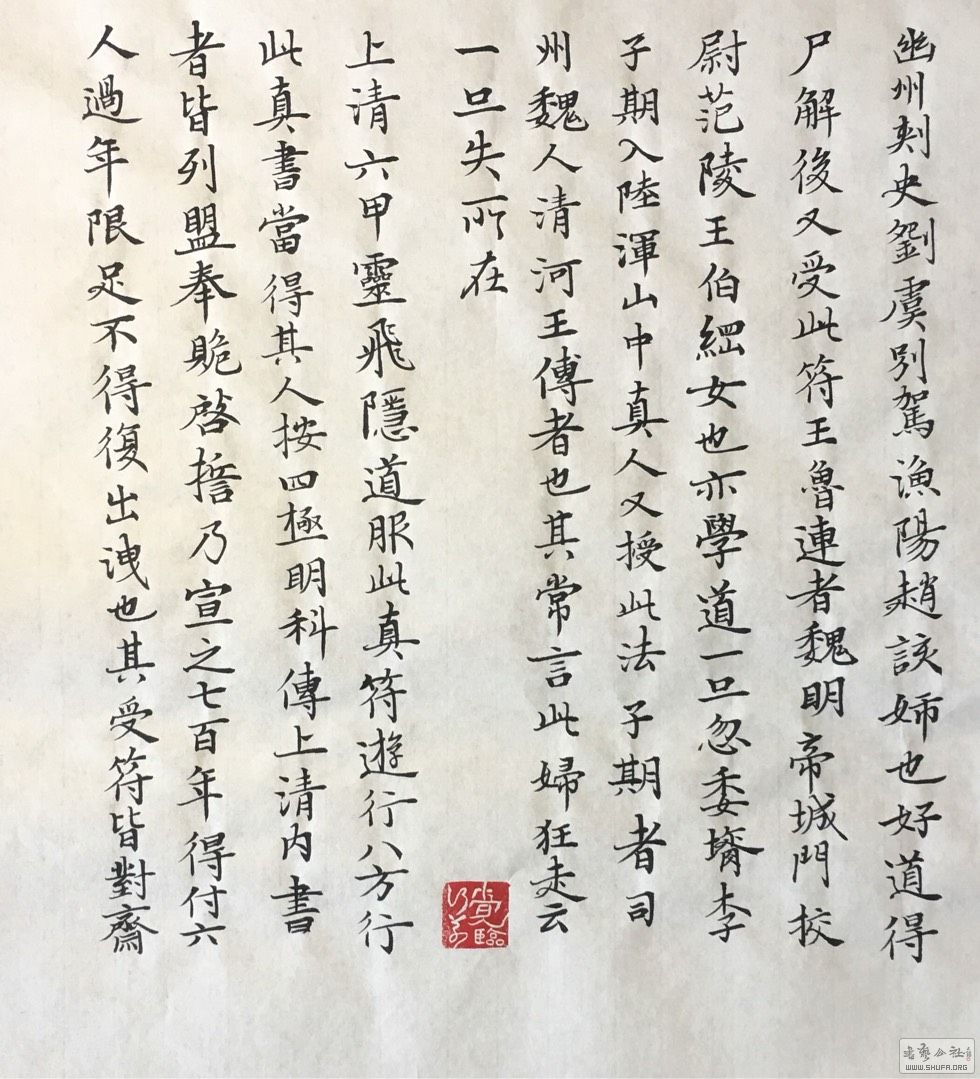 幽州刺史劉虞別駕漁陽趙該姉也好道得
尸解後又受此符王魯連者魏明帝城門校
尉范陵王伯綱女也亦學道一旦忽委壻李
子期入陸渾山中真人又授此法子期者司
州魏人清河王傅者也其常言此婦狂走云
一旦失所在
上清六甲靈飛隱道服此真符遊行八方行
此真書當得其人按四極明科傳上清內書
者皆列盟奉跪啓擔乃宣之七百年得付六
人過年限足不得復出洩也其受符皆對齋
書藝公社
WWW.SHUFA.ORG